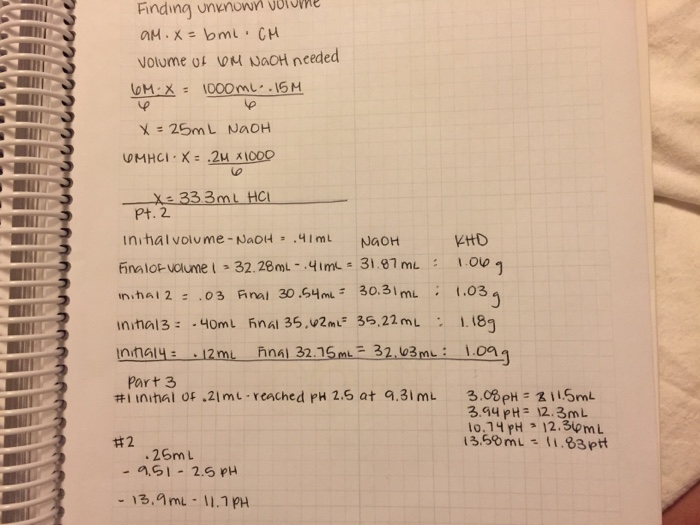 Finding unknown volume
aM · x = bmL · CM
Volume of 6M NaOH needed
6M · X / 6 = 1000mL · .15M / 6
X = 25mL NaOH
6MHCl · X = .2M x1000 / 6
X = 33.3mL HCl
Pt. 2
Initial volume - NaOH = .41ml NaOH KHD
Final of volume 1 = 32.28mL - .41mL = 31.87mL : 1.06g
initial 2 = .03 Final 30.54mL = 30.31mL : 1.03g
initial 3 = .40mL Final 35.62mL = 35.22mL : 1.18g
Initial 4 = .12mL Final 32.75mL = 32.63mL : 1.09g
Part 3
#1 initial of .21mL - reached pH 2.5 at 9.31mL 3.08pH = 11.5mL
3.94pH = 12.3mL
10.74pH = 12.36mL
13.58mL = 11.83pH
#2
.25mL
- 9.51 - 2.5 pH
- 13.9mL - 11.7pH